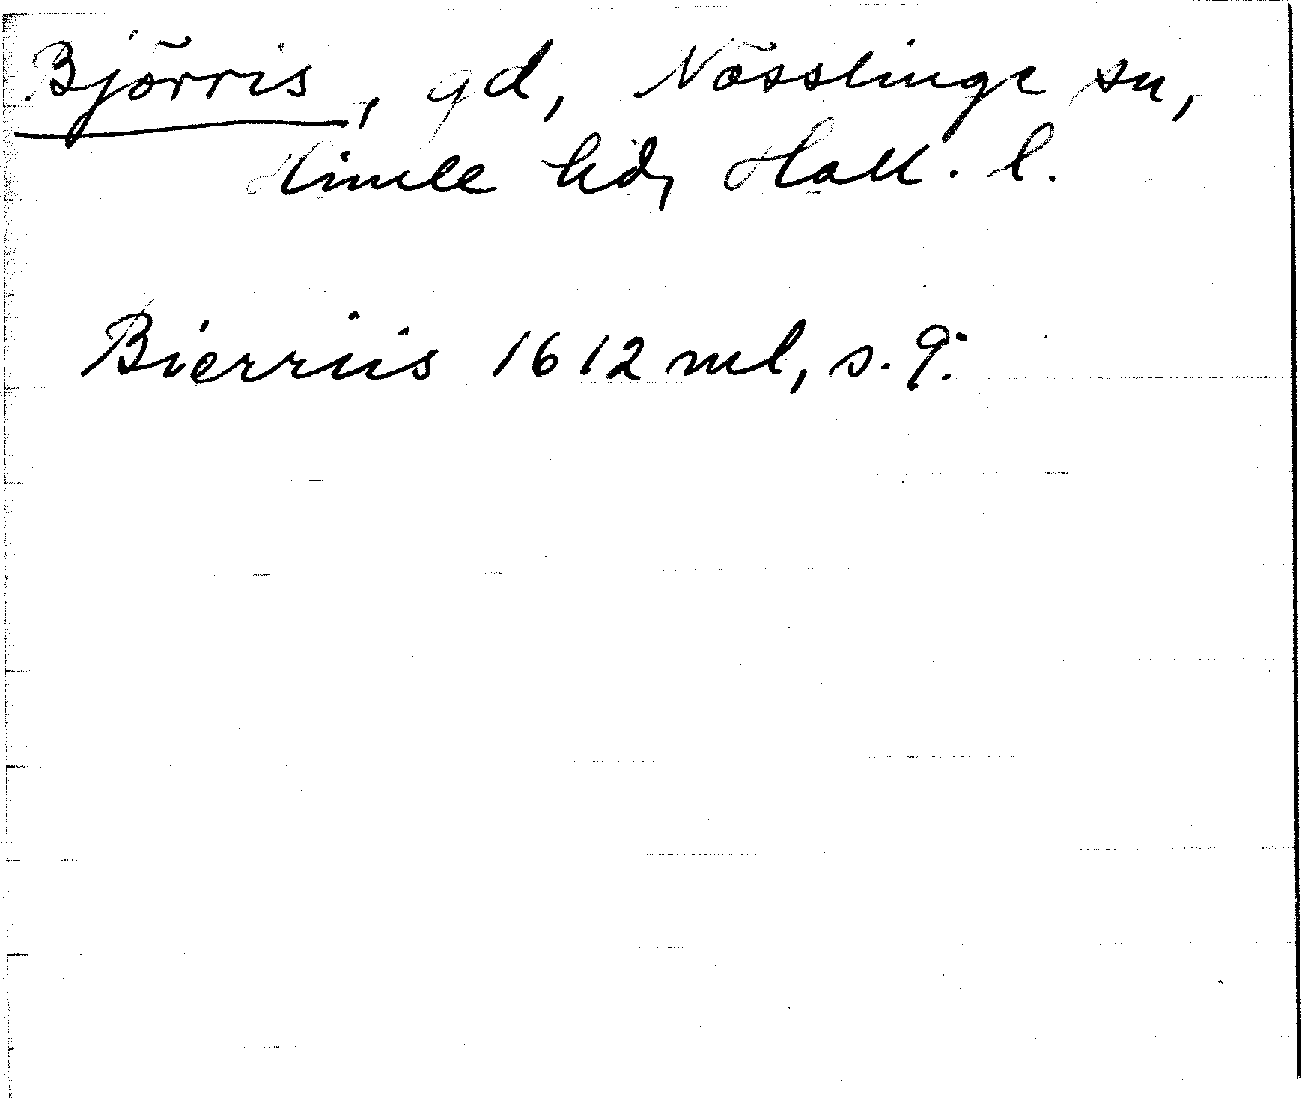 Björris, gd, Nösslinge sn,
Himle hd, Hall. l.
Bierriis 1612 ml, s. 9.